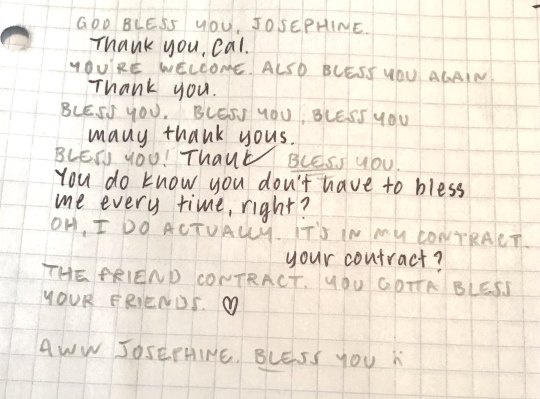 GOD BLESS YOU, JOSEPHINE.
Thank you, Cal.
YOU'RE WELCOME. ALSO BLESS YOU AGAIN.
Thank you.
BLESS YOU. BLESS YOU, BLESS YOU
many thank yous.
BLESS YOU! Thank BLESS YOU.
You do know you don't have to bless
me every time, right?
OH, I DO ACTUALLY. IT'S IN MY CONTRACT.
your contract?
THE FRIEND CONTRACT. YOU GOTTA BLESS
YOUR FRIENDS. ♡
AWW JOSEPHINE. BLESS YOU